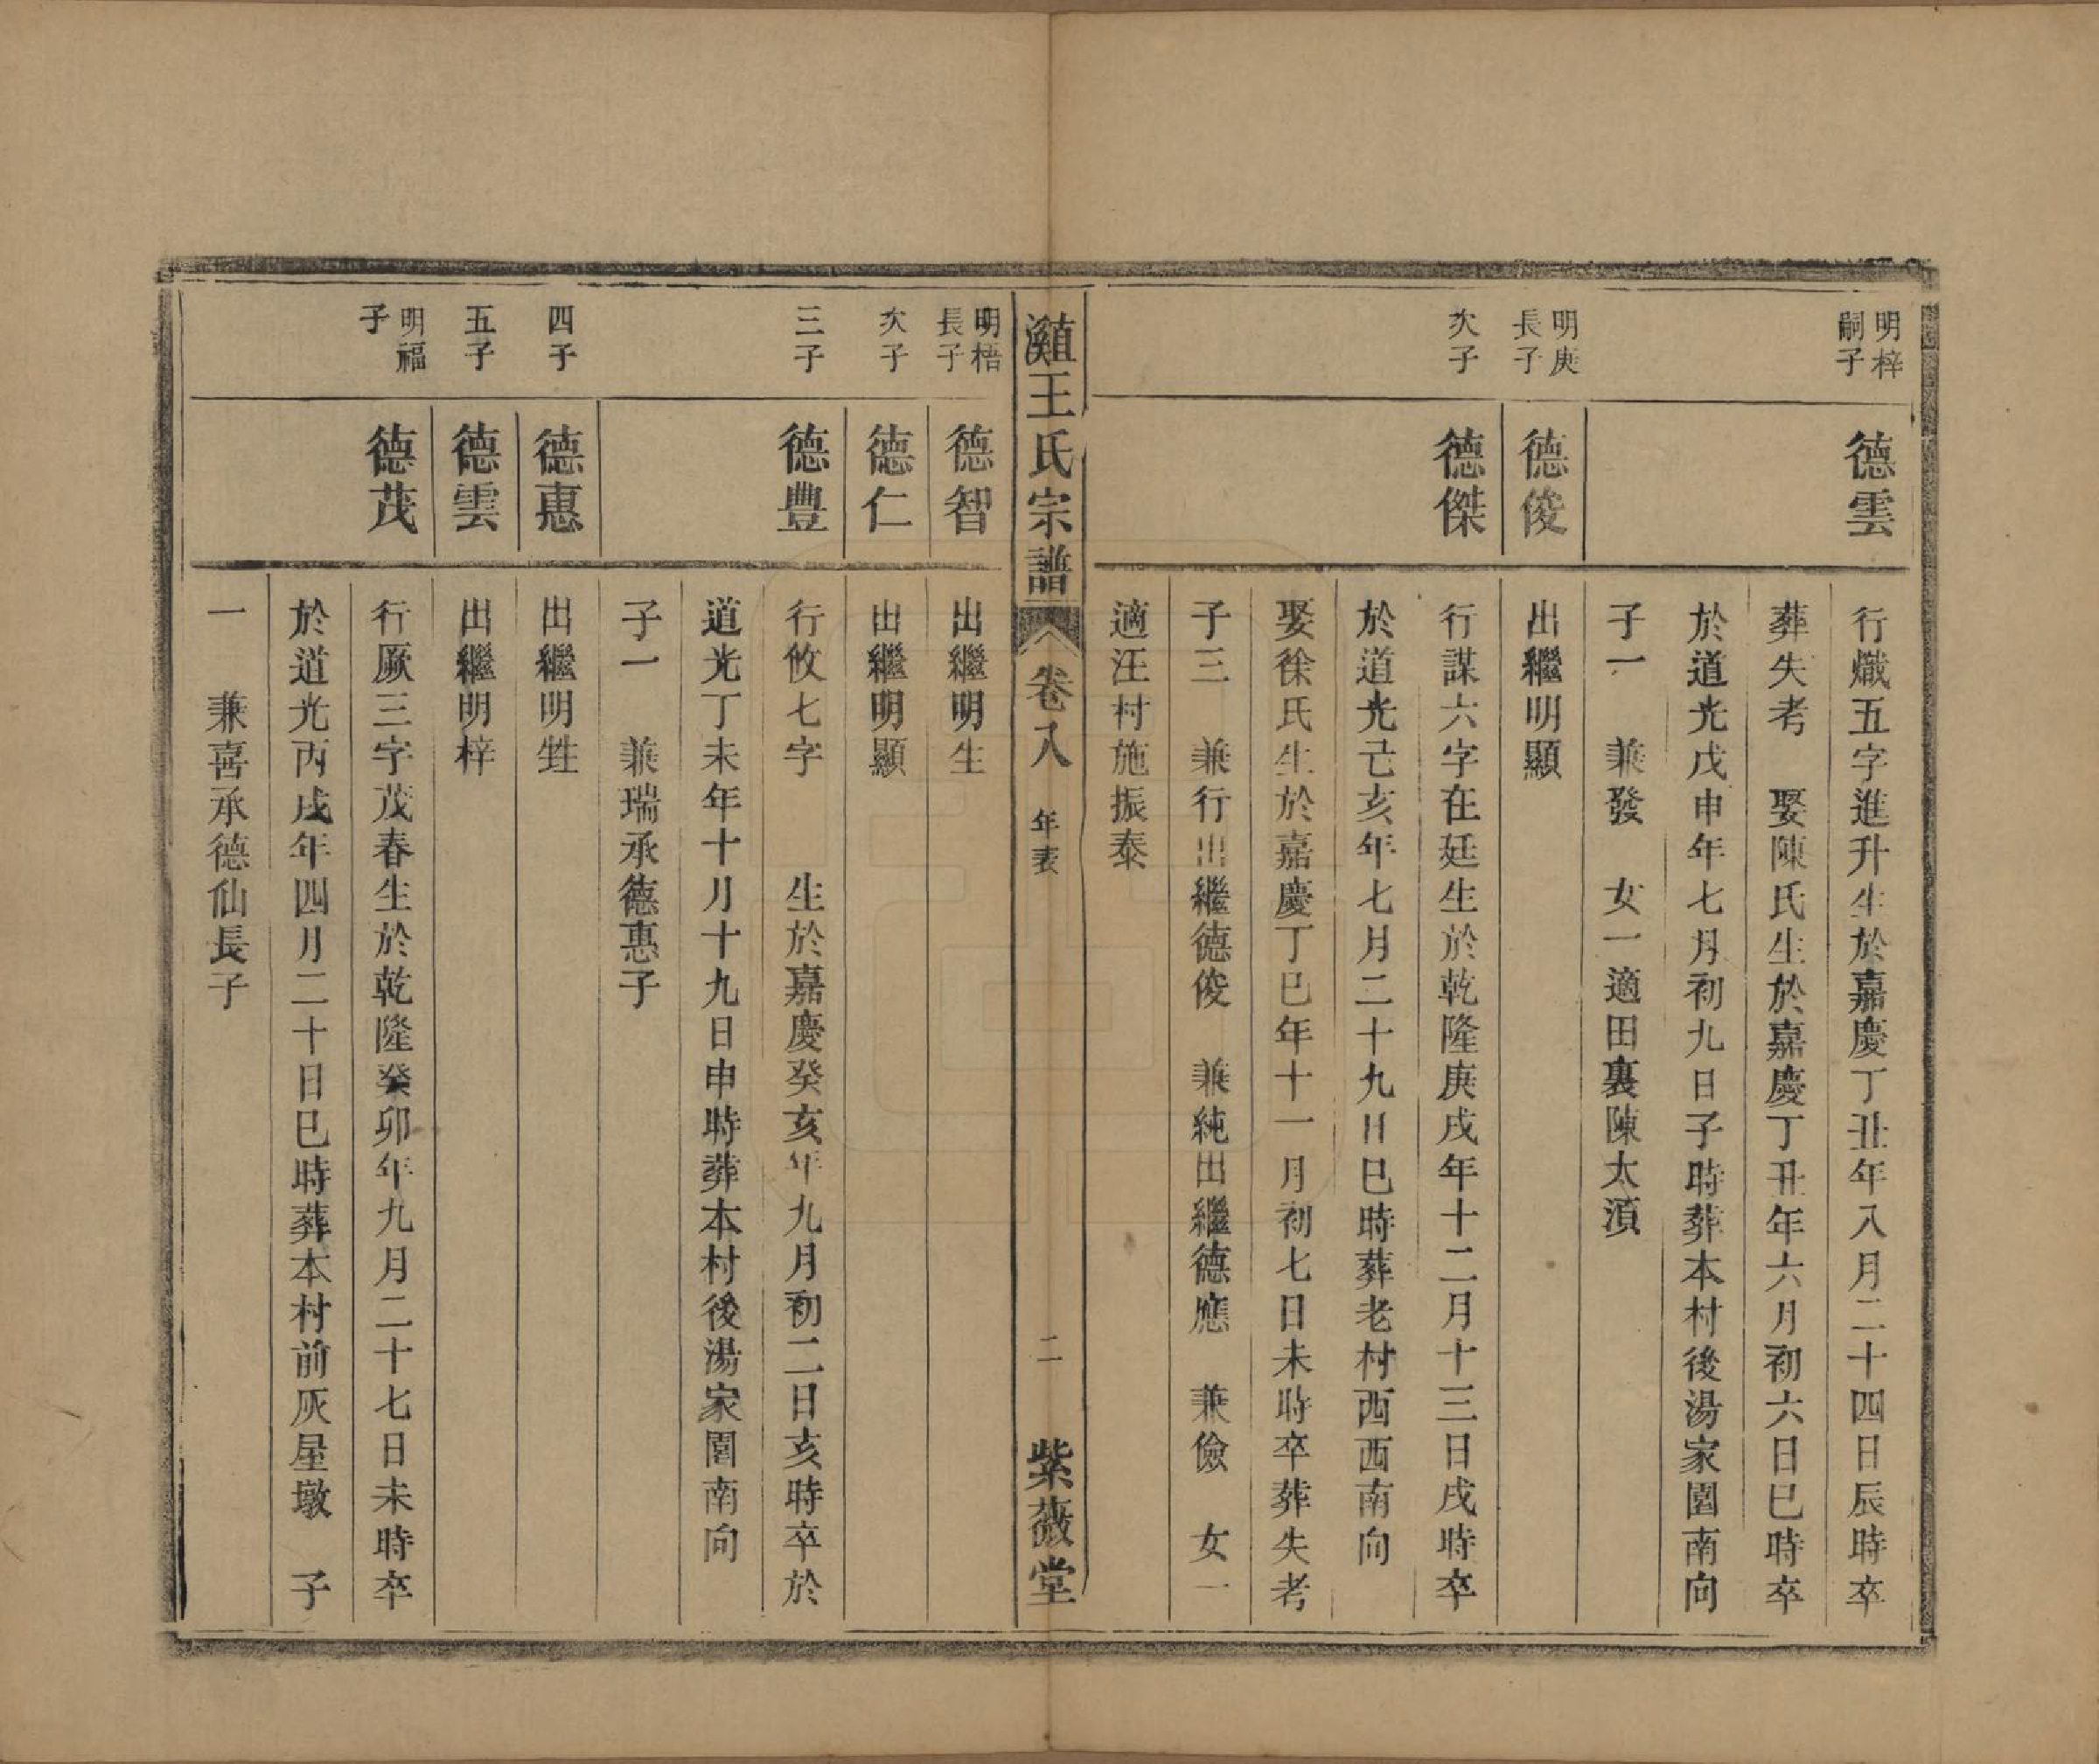 明梓
嗣子
德雲
行熾五字進升生於嘉慶丁丑年八月二十四日辰時卒
葬失考　娶陳氏生於嘉慶丁丑年六月初六日巳時卒
於道光戊申年七月初九日子時葬本村後湯家園南向
子一　兼發　女一適田裏陳太湏
明庚
長子
德俊
出繼明顯
次子
德傑
行謀六字在廷生於乾隆庚戌年十二月十三日戌時卒
於道光己亥年七月二十九日巳時葬老村西西南向
娶徐氏生於嘉慶丁巳年十一月初七日未時卒葬失考
子三　兼行出繼德俊　兼純出繼德應　兼儉　女一
適汪村施振泰
王氏宗譜　卷八　年表　二　紫薇堂
明梧
長子
德智
出繼明生
次子
德仁
出繼明顯
三子
德豐
行攸七字　　生於嘉慶癸亥年九月初二日亥時卒於
道光丁未年十月十九日申時葬本村後湯家園南向
子一　兼瑞承德惠子
四子
德惠
出繼明甡
五子
德雲
出繼明梓
明福
子
德茂
行厥三字茂春生於乾隆癸卯年九月二十七日未時卒
於道光丙戌年四月二十日巳時葬本村前灰屋墩　子
一　兼喜承德仙長子